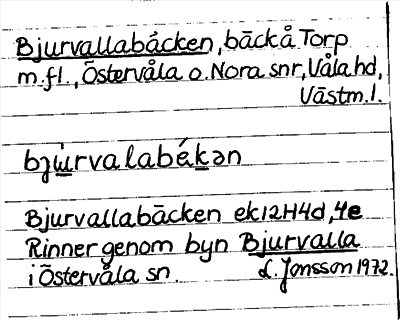 Bjurvallabäcken, bäck å Torp
m.fl., Östervåla o. Nora snr, Våla hd,
Västm.l.
bjù̱rvalabéḵən
Bjurvallabäcken ek 12H4d, 4e
Rinner genom byn Bjurvalla
i Östervåla sn. L. Jonsson 1972.